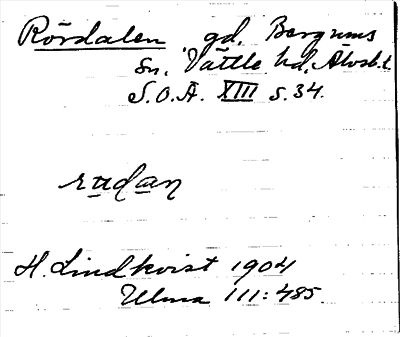 Rördalen gd. Bergums
sn. Vättle hd. Älvsb. l.
S.O.Ä. XIII s. 34.
rudan
H. Lindkvist 1904
Ulma 111:485.